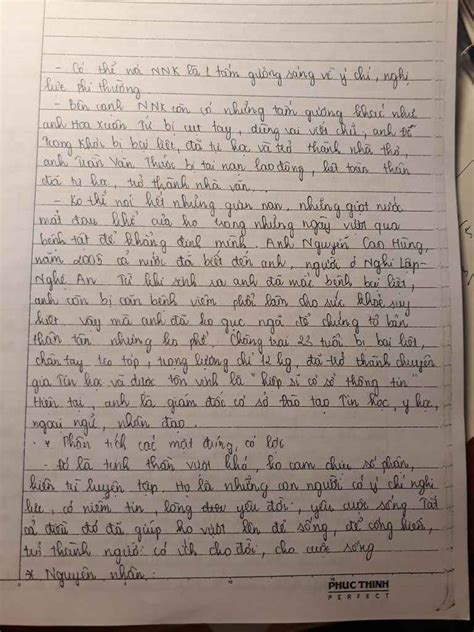 - Có thể nói NNK là 1 tấm gương sáng về ý chí, nghị
lực phi thường
- Bên cạnh NNK còn có những tấm gương khác như
anh Hoa Xuân Tứ bị cụt tay, dùng vai viết chữ, anh Đỗ
Trọng Khơi bị bại liệt, đã tự học và trở thành nhà thơ,
anh Trần Văn Thước bị tai nạn lao động, liệt toàn thân
đã tự học, trở thành nhà văn
- Ko thể nói hết những gian nan, những giọt nước
mắt đau khổ của họ trong những ngày vượt qua
bệnh tật để khẳng định mình. Anh Nguyễn Công Hùng,
năm 2005 cả nước đã biết đến anh, người ở Nghi Lộc-
Nghệ An. Từ khi sinh ra anh đã mắc bệnh bại liệt,
anh còn bị căn bệnh viêm phổi làm cho sức khoẻ suy
kiệt vậy mà anh đã ko gục ngã để chứng tỏ bản
thân tàn nhưng ko phế. Chàng trai 23 tuổi bị bại liệt,
chân tay teo tóp, trọng lượng chỉ 12 kg, đã trở thành chuyên
gia Tin học và được tôn vinh là "hiệp sĩ cơ sở thông tin"
Hiện tại, anh là giám đốc cơ sở đào tạo Tin học,
ngoại ngữ, nhân đạo.
* Phân tích các mặt đúng, có lợi
- Đó là tinh thần vượt khó, ko cam chịu số phận,
kiên trì luyện tập. Họ là những con người có ý chí nghị
lực, có niềm tin, lòng yêu đời, yêu cuộc sống Tất
cả điều đó đã giúp họ vượt lên để sống, để cống hiến,
trở thành người có ích cho đời, cho cuộc sống
* Nguyên nhân:
PHUC THINH
PERFECT